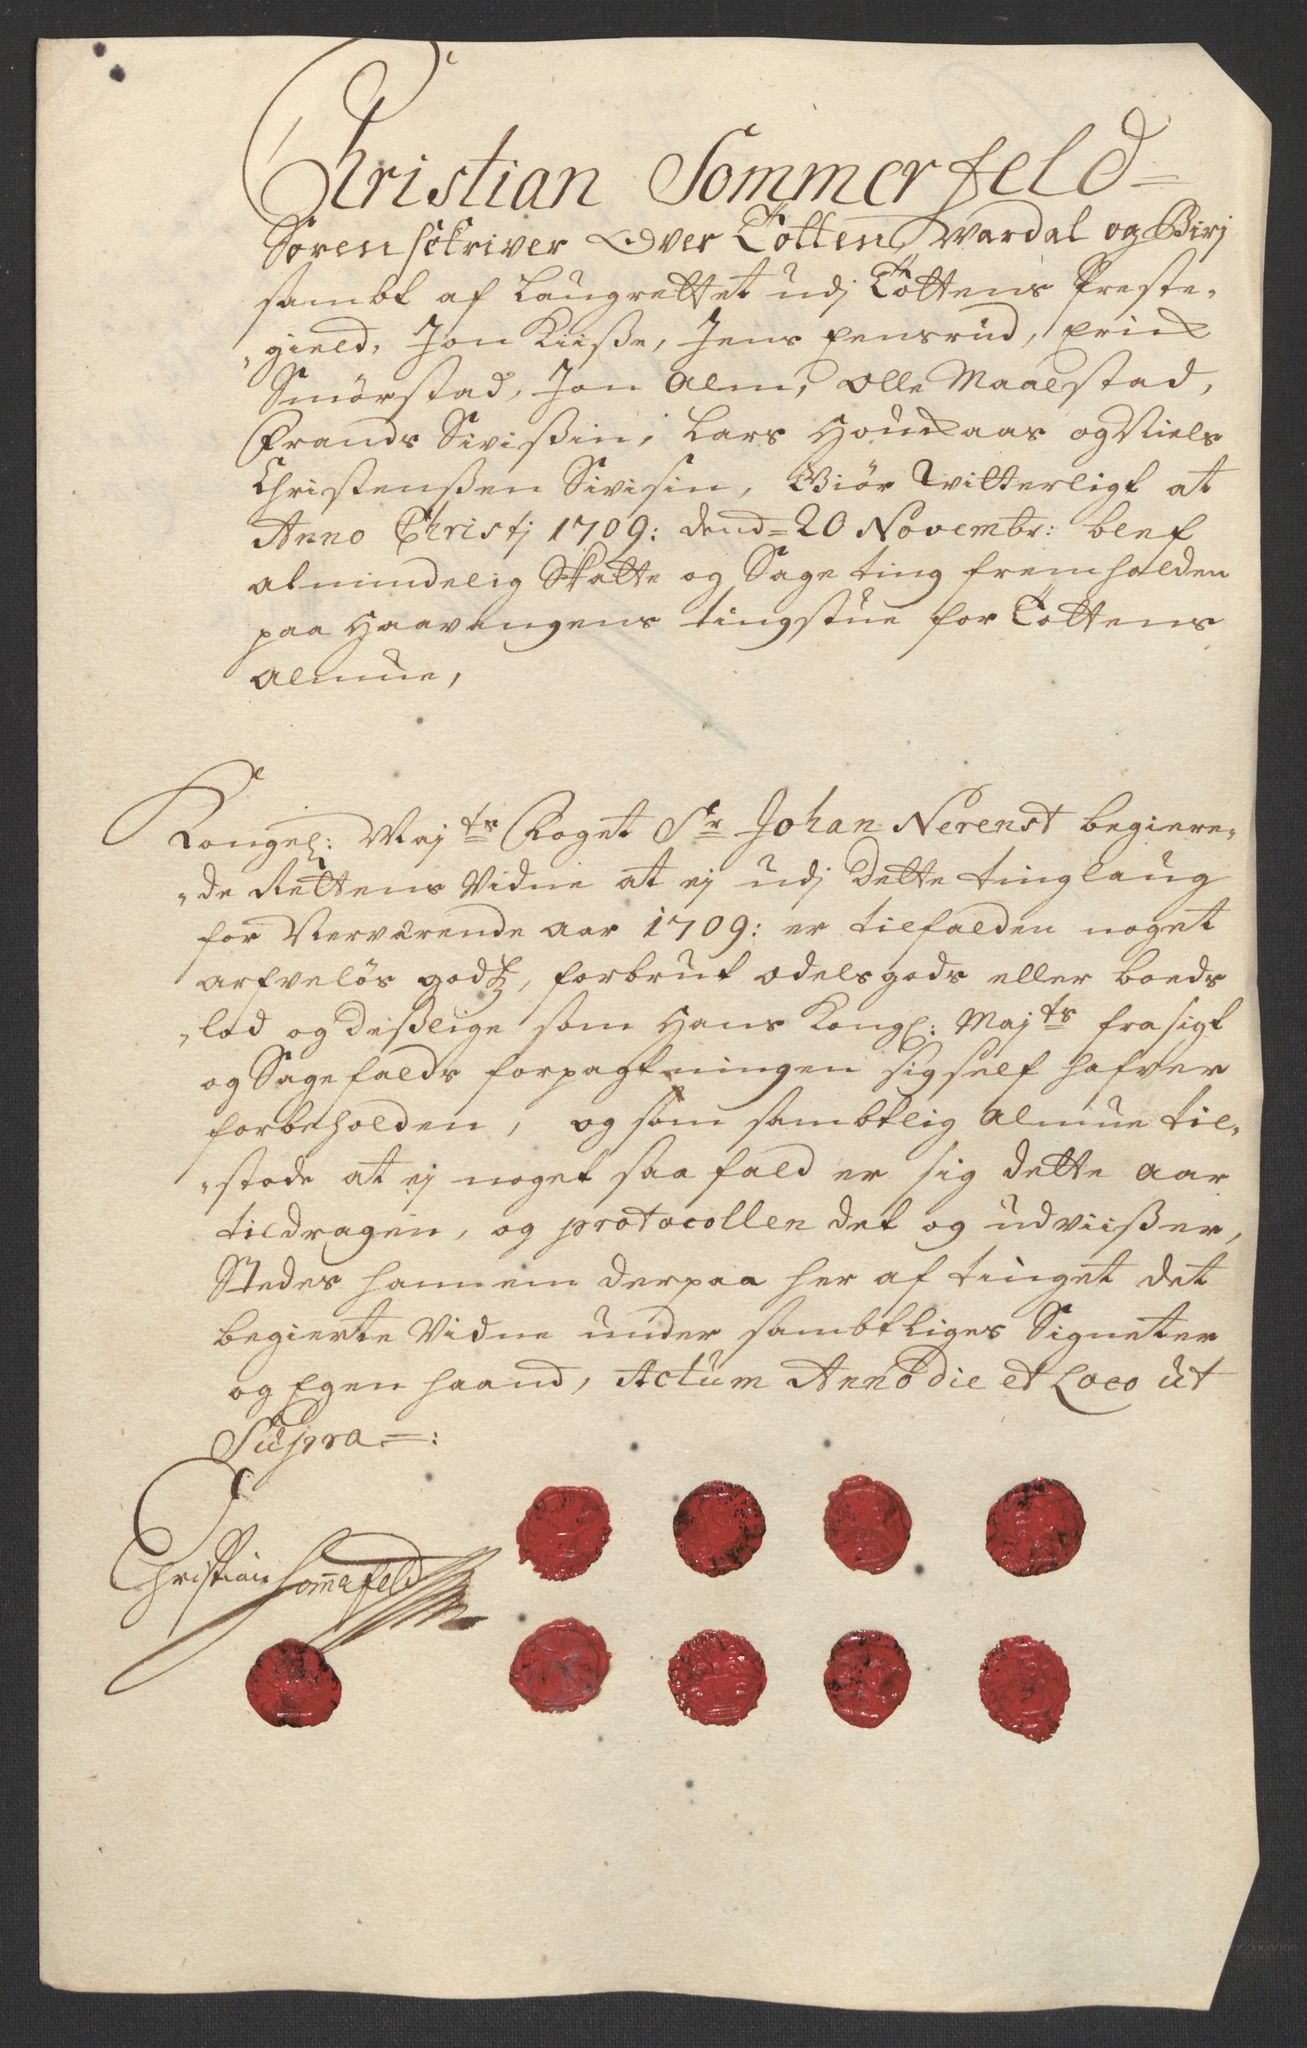 Christian Sommerfeld
Sorenschriver Over Totten, Wardal og Birj
sambt af Laugrettet udj Tottens Preste-
gield, Jon Kiiße, Jens Fensrud, Erich
Smörstad, Jon Alm, Olle Maalstad,
Frands Sivißin, Lars Hofaas og Niels
Christenßen Sivisin, Giör Witterligt at
Anno Christj 1709: dend 20 Novembr: blef
almindelig Skatte og Sage ting fremholden
paa Haavangens tingstue for Tottens
Almue,
Kongel: Maj:ts Foget Sr Johan Nerenst begiere-
de Rettens Vidne at ej udj dette tinglaug
for Nerværende aar 1709: er tilfalden noget
arfveløs godtz, forbrut odelsgods eller boeds
lod og deßlige som Hans Kongl: Maj:ts fra sigt
og Sagefalds forpagtningen sig self hafver
forbeholden, og som sambtlig Almue til-
stode at ej noget saa fald er sig dette aar
tildragen, og protocollen det og udviißer,
Stedes hannem derpaa her af tinget det
begierte Vidne under sambtliges Signeter
og Egen haand, Actum Anno die et Loco ut
Supra:
Christian Sommerfeld